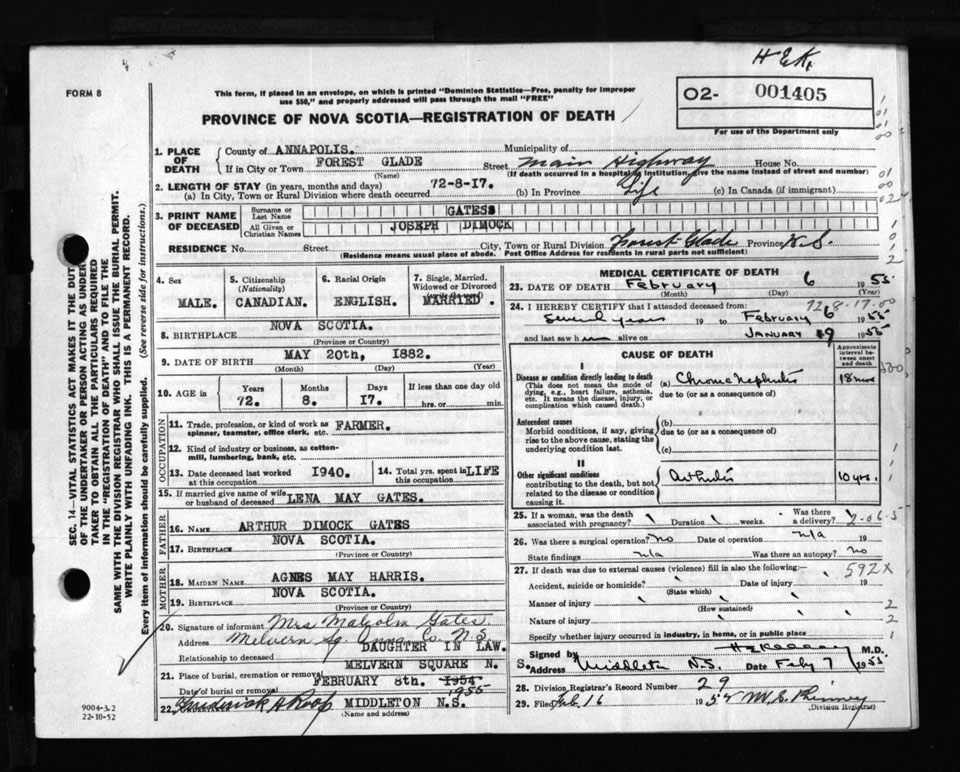 H E K.
FORM 8
This form, if placed in an envelope, on which is printed "Dominion Statistics—Free, penalty for improper
use $50," and properly addressed will pass through the mail "FREE"
O2- 001405
For use of the Department only
PROVINCE OF NOVA SCOTIA—REGISTRATION OF DEATH
1. PLACE OF DEATH County of ANNAPOLIS. Municipality of
If in City or Town FOREST GLADE Street Main Highway House No.
(Name) (If death occurred in a hospital or institution, give the name instead of street and number)
2. LENGTH OF STAY (in years, months and days)
(a) In City, Town or Rural Division where death occurred 72-8-17. (b) In Province Life (c) In Canada (if immigrant)
3. PRINT NAME OF DECEASED Surname or Last Name GATES
All Given or Christian Names JOSEPH DIMOCK
RESIDENCE No. Street City, Town or Rural Division Forest Glade Province N.S.
(Residence means usual place of abode. Post Office Address for residents in rural parts not sufficient)
4. Sex MALE.
5. Citizenship (Nationality) CANADIAN.
6. Racial Origin ENGLISH.
7. Single, Married, Widowed or Divorced MARRIED.
8. BIRTHPLACE NOVA SCOTIA.
(Province or Country)
9. DATE OF BIRTH MAY 20th, 1882.
(Month) (Day) (Year)
10. AGE in Years 72. Months 8. Days 17. If less than one day old hrs. or min.
OCCUPATION
11. Trade, profession, or kind of work as spinner, teamster, office clerk, etc. FARMER.
12. Kind of industry or business, as cotton-mill, lumbering, bank, etc.
13. Date deceased last worked at this occupation 1940. 14. Total yrs. spent in this occupation LIFE
15. If married give name of wife or husband of deceased LENA MAY GATES.
FATHER
16. NAME ARTHUR DIMOCK GATES
17. BIRTHPLACE NOVA SCOTIA.
(Province or Country)
MOTHER
18. MAIDEN NAME AGNES MAY HARRIS.
19. BIRTHPLACE NOVA SCOTIA.
(Province or Country)
20. Signature of informant Mrs Malcolm Gates.
Address Melvern Sq. Anna Co. N.S.
Relationship to deceased DAUGHTER IN LAW.
21. Place of burial, cremation or removal MELVERN SQUARE N. S.
Date of burial or removal FEBRUARY 8th. 1954 1955
22. Frederick A Roop MIDDLETON N.S.
(Name and address)
MEDICAL CERTIFICATE OF DEATH
23. DATE OF DEATH February 6 1955
(Month) (Day) (Year)
72 8-17-00
24. I HEREBY CERTIFY that I attended deceased from:
Several years 19 to February 6 1955
and last saw him alive on JANUARY 19 1955
CAUSE OF DEATH
Approximate interval between onset and death
I
Disease or condition directly leading to death (a) Chronic Nephritis 18 mos
(This does not mean the mode of dying, e.g., heart failure, asthenia, etc. It means the disease, injury, or complication which caused death.)
due to (or as a consequence of)
Antecedent causes (b)
Morbid conditions, if any, giving rise to the above cause, stating the underlying condition last.
due to (or as a consequence of)
(c)
II
Other significant conditions Arthritis 10 yrs.
contributing to the death, but not related to the disease or condition causing it.
25. If a woman, was the death associated with pregnancy? Duration weeks. Was there a delivery? 2-06-5
26. Was there a surgical operation? no Date of operation n/a 19
State findings n/a Was there an autopsy? no
27. If death was due to external causes (violence) fill in also the following:— 592X
Accident, suicide or homicide? Date of injury 19
(State which)
Manner of injury
(How sustained)
Nature of injury
Specify whether injury occurred in industry, in home, or in public place
Signed by M.D.
Address Middleton N.S. Date Feb 7 1955
28. Division Registrar's Record Number 29
29. Filed Feb 16 1955
(Division Registrar)
SEC. 14—VITAL STATISTICS ACT MAKES IT THE DUTY
OF THE UNDERTAKER OR PERSON ACTING AS UNDER-
TAKER TO OBTAIN ALL THE PARTICULARS REQUIRED
IN THE "REGISTRATION OF DEATH" AND TO FILE THE
SAME WITH THE DIVISION REGISTRAR WHO SHALL ISSUE THE BURIAL PERMIT.
WRITE PLAINLY WITH UNFADING INK. THIS IS A PERMANENT RECORD.
Every item of information should be carefully supplied. (See reverse side for instructions.)
9004-3.2
22-10-52